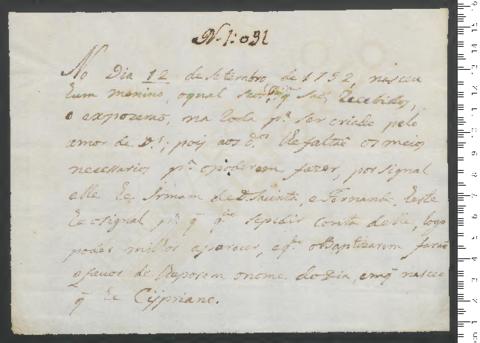 N. 1:091
No Dia 12 de Setembro de 1792 nasceu
hum menino, o qual seus Pais q sal, Recebidos,
o expozemos, na Roda pa. ser criado pelo
amor de D.s; pois aos d.os lhe faltão os meios
necessarios pa. o poderem fazer, por signal
elle he Irmam de e Fernando este
he o signal pa. q qdo. se pedir conta delle, logo
poder milhor aparecer, e qdo. o Baptizarem farão
o favor de lhe porem o nome do Dia, em q nasceo
q he Cypriano.